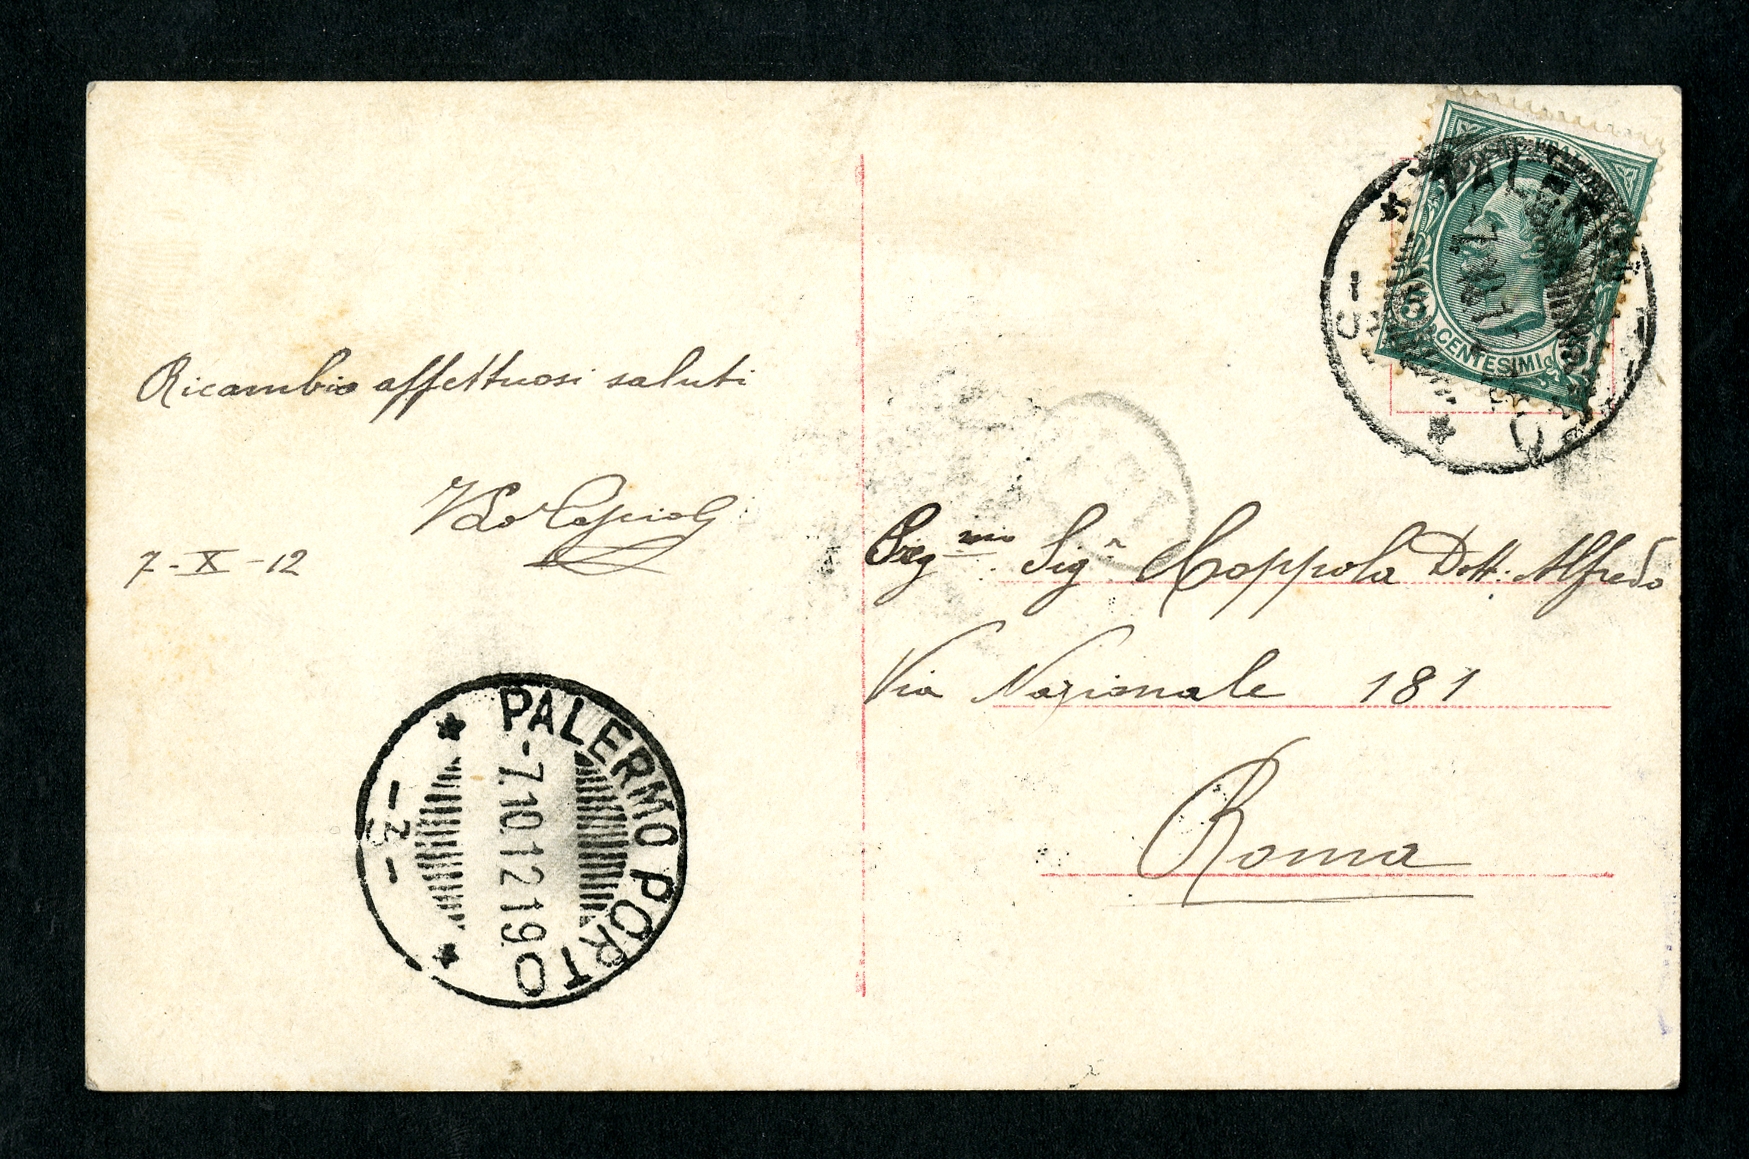 Ricambio affettuosi saluti
7-X-12
PALERMO PORTO
-7.10.12 19
-3-
5 CENTESIMI
Sig.r Coppola Dott. Alfredo
Via Nazionale 181
Roma